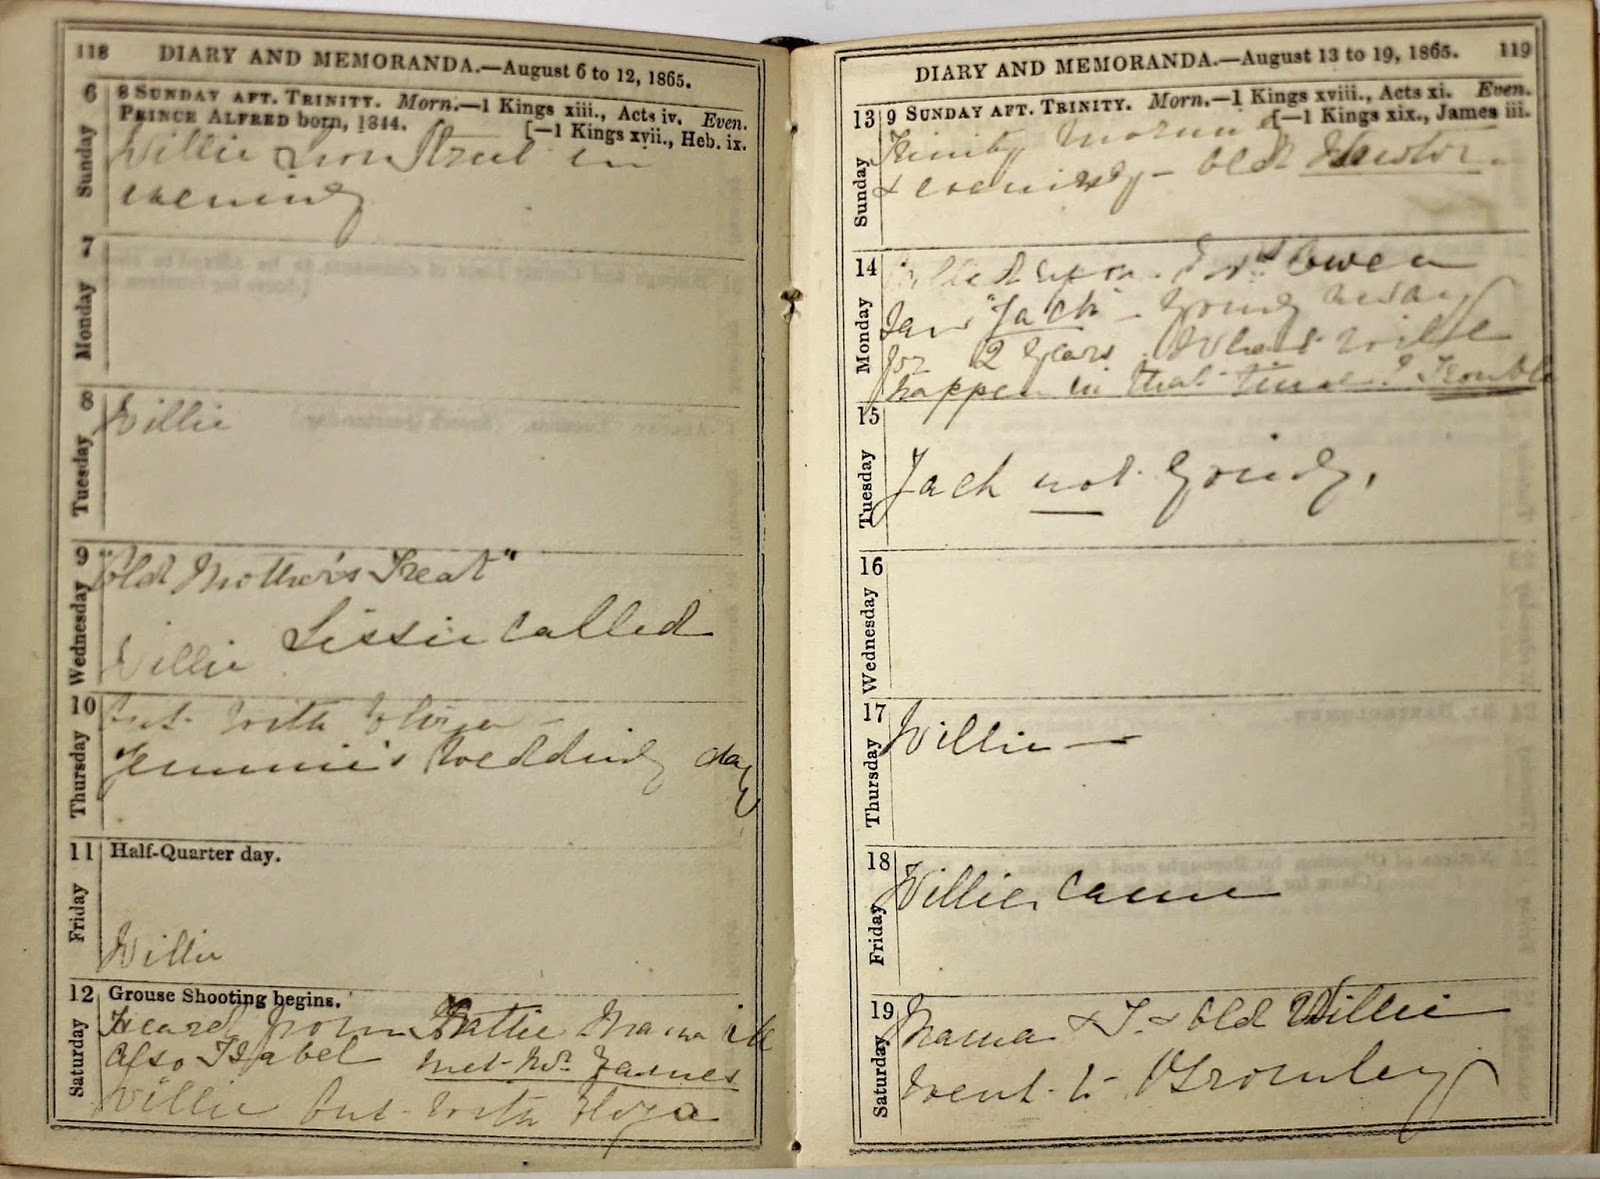 118 DIARY AND MEMORANDA.—August 6 to 12, 1865.
6 Sunday
8 SUNDAY AFT. TRINITY. Morn.—1 Kings xiii., Acts iv. Even.
PRINCE ALFRED born, 1844. [—1 Kings xvii., Heb. ix.
Willie Lion Street in
evening
7 Monday
8 Tuesday
Willie
9 Wednesday
"Old Mother's Treat"
Lissie called
Willie
10 Thursday
out with Eliza
Jemmie's Wedding day
11 Friday
Half-Quarter day.
Willie
12 Saturday
Grouse Shooting begins.
Heard from Hattie Mama ill
Also Isabel met Mr. James
Willie out with Eliza
DIARY AND MEMORANDA.—August 13 to 19, 1865. 119
13 Sunday
9 SUNDAY AFT. TRINITY. Morn.—1 Kings xviii., Acts xi. Even.
[—1 Kings xix., James iii.
Trinity morning
& evening — Old
14 Monday
Called upon Owen
Saw "Jack" — Going away
for 2 Years. What will
happen in that time? Trouble
15 Tuesday
Jack not going.
16 Wednesday
17 Thursday
Willie —
18 Friday
Willie came
19 Saturday
Mama & I & Old Willie
went to Bromley